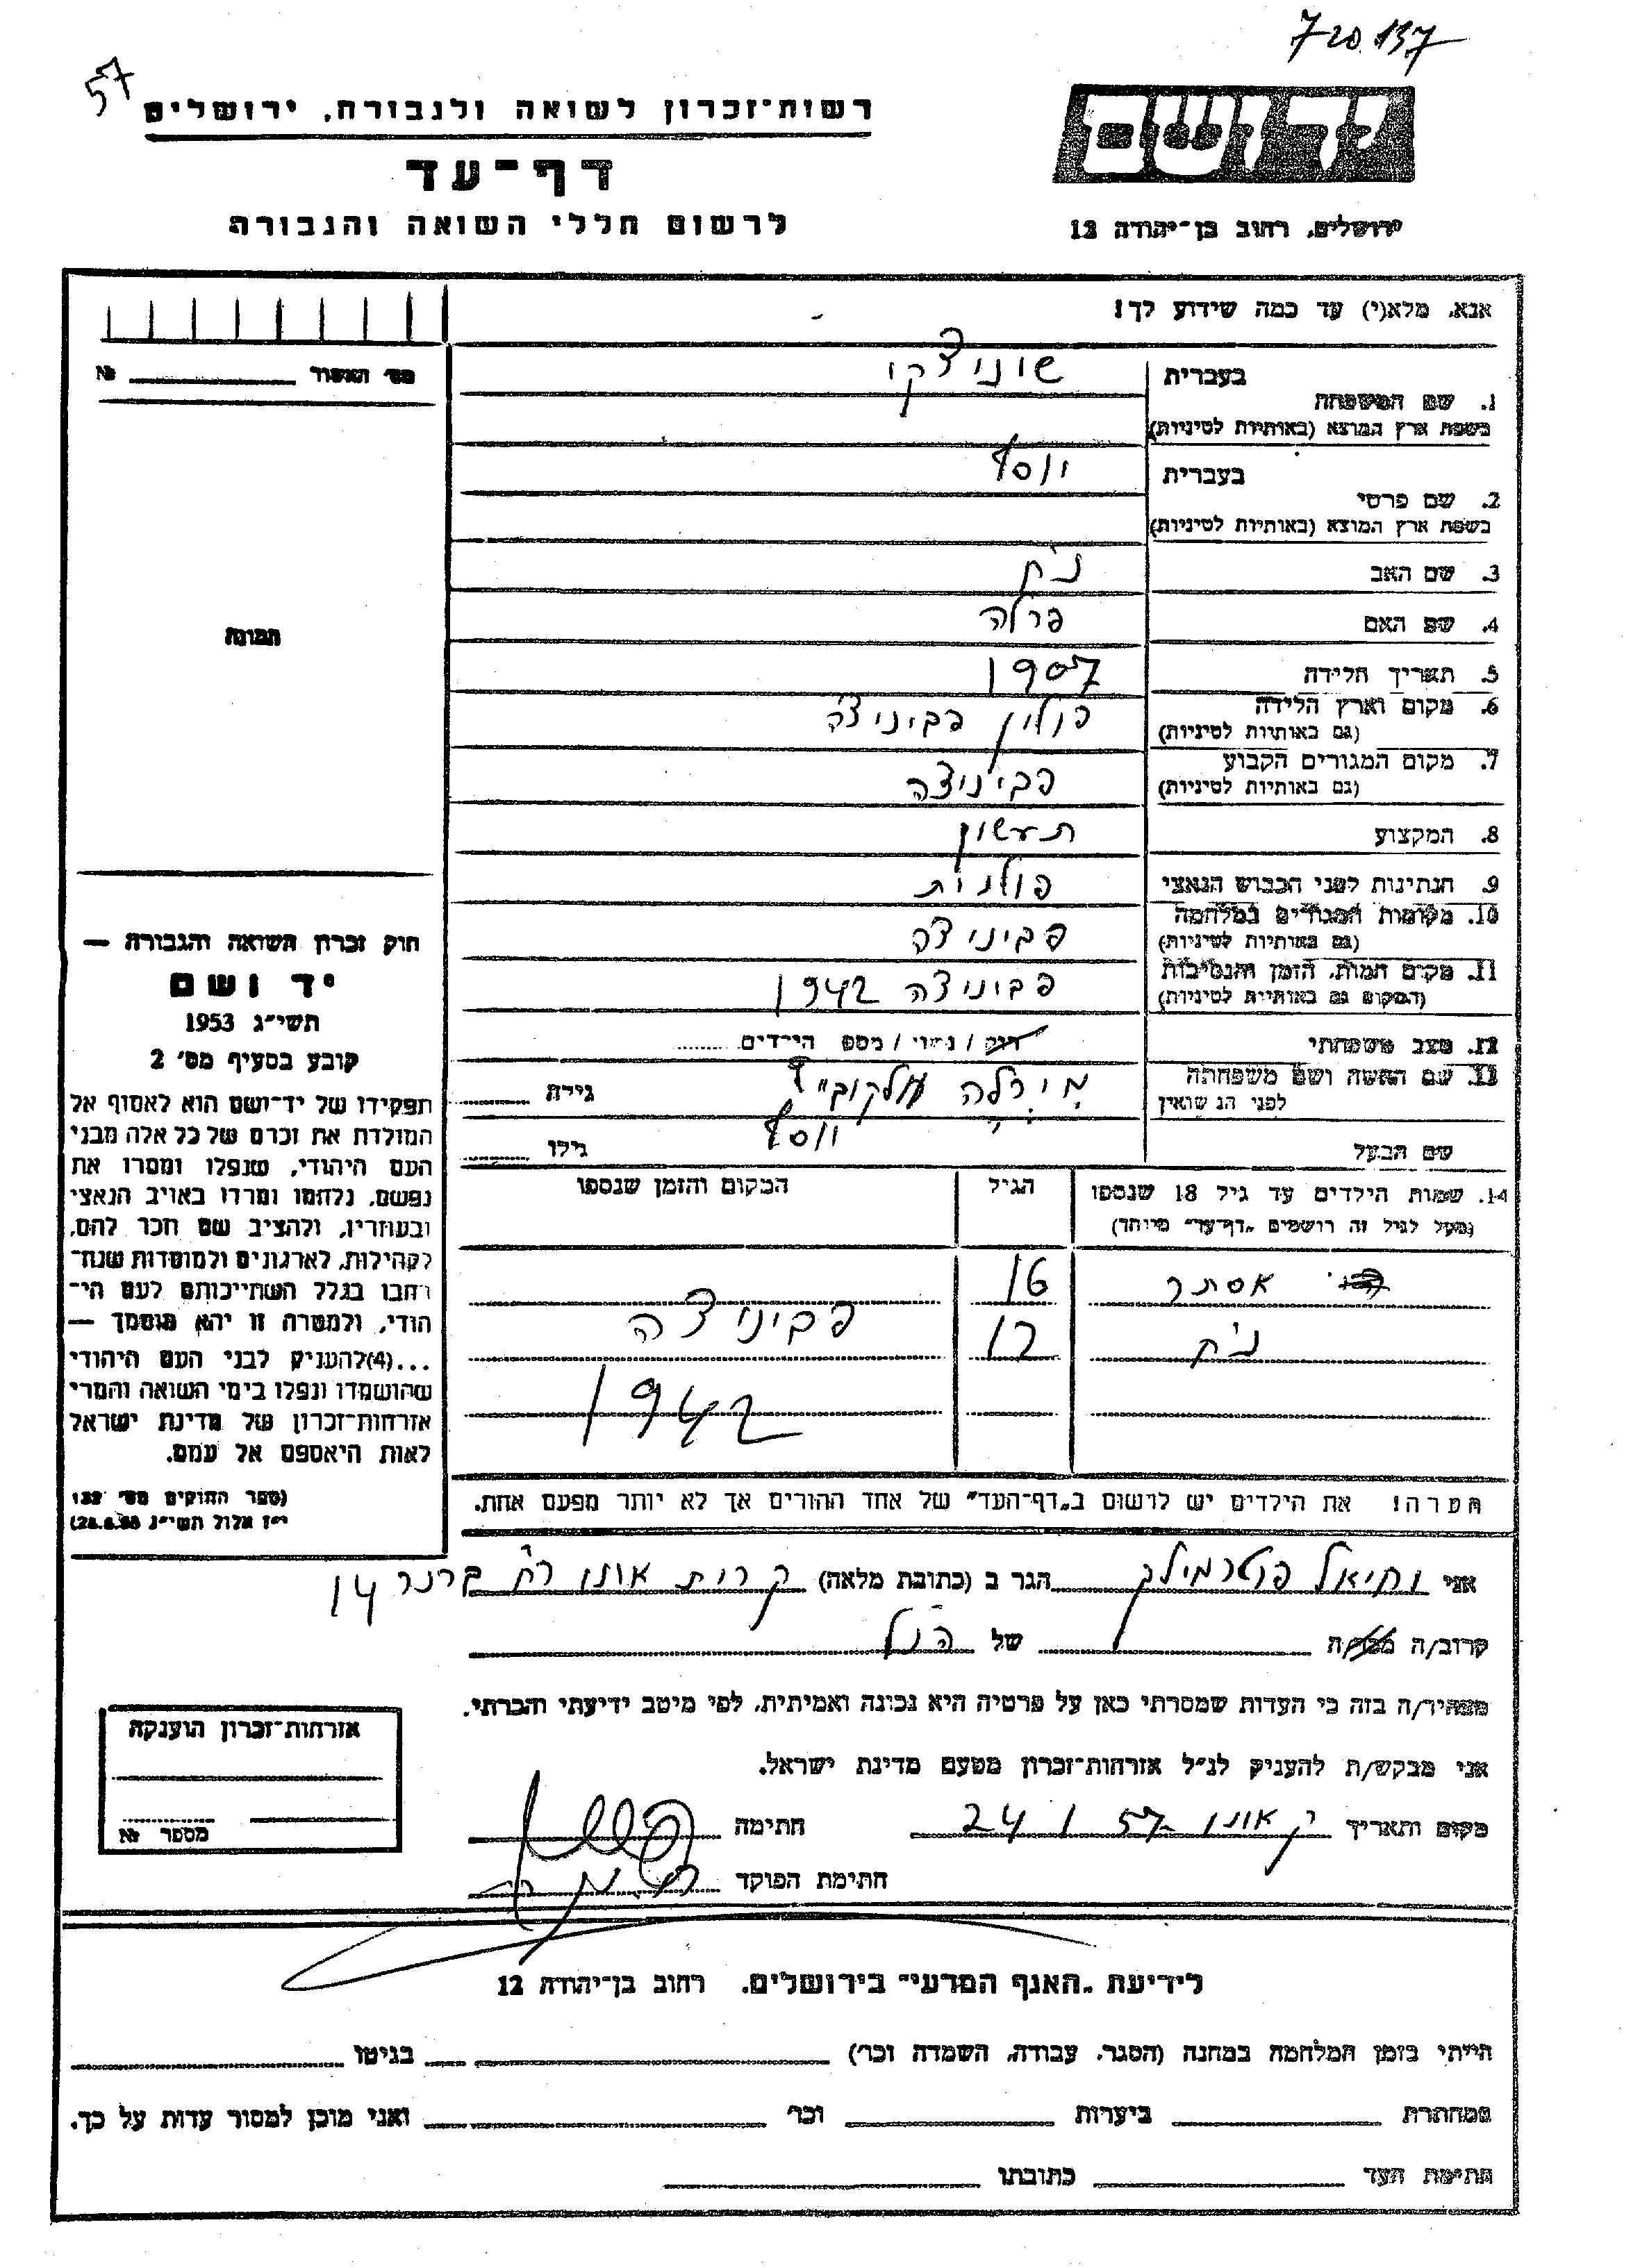 720.137
57
רשות־זכרון לשואה ולגבורה, ירושלים
יד ושם
דף־עד
לרשום חללי השואה והגבורה
ירושלים, רחוב בן־יהודה 12
אנא, מלא(י) עד כמה שידוע לך!
מס' האשור № ______
בעברית שוניצקי
1. שם המשפחה
בשפת ארץ המוצא (באותיות לטיניות)
בעברית יוסף
2. שם פרטי
בשפת ארץ המוצא (באותיות לטיניות)
3. שם האב
4. שם האם פרלה
תמונה
5. תאריך הלידה 1907
6. מקום וארץ הלידה פולין פביניצה
(גם באותיות לטיניות)
7. מקום המגורים הקבוע פביניצה
(גם באותיות לטיניות)
8. המקצוע
9. הנתינות לפני הכבוש הנאצי פולנית
10. מקומות המגורים במלחמה פביניצה
(גם באותיות לטיניות)
11. מקום המות, הזמן והנסיבות פביניצה 1942
(המקום גם באותיות לטיניות)
12. מצב משפחתי רווק / נשוי / מספר הילדים ........
13. שם האשה ושם משפחתה מירלה גילה ........
לפני הנשואין
שם הבעל יוסף גילו ........
14. שמות הילדים עד גיל 18 שנספו הגיל המקום והזמן שנספו
(מעל לגיל זה רושמים „דף־עד" מיוחד)
אסתר 16
12 פביניצה
1942
חוק זכרון השואה והגבורה —
יד ושם
תשי״ג 1953
קובע בסעיף מס' 2
תפקידו של יד־ושם הוא לאסוף אל
המולדת את זכרם של כל אלה מבני
העם היהודי, שנפלו ומסרו את
נפשם, נלחמו ומרדו באויב הנאצי
ובעוזריו, ולהציב שם וזכר להם,
לקהילות, לארגונים ולמוסדות שנח־
רבו בגלל השתייכותם לעם הי־
הודי, ולמטרה זו יהא מוסמך —
...(4)להעניק לבני העם היהודי
שהושמדו ונפלו בימי השואה והמרי
אזרחות־זכרון של מדינת ישראל
לאות היאספם אל עמם.
(ספר החוקים מס' 132
י״ז אלול תשי״ג 28.8.53)
הערה! את הילדים יש לרשום ב„דף־העד" של אחד ההורים אך לא יותר מפעם אחת.
אני הגר ב (כתובת מלאה) קרית אונו רח' ברנר 14
קרוב/ה מכר/ה ______ של הנ״ל
מצהיר/ה בזה כי העדות שמסרתי כאן על פרטיה היא נכונה ואמיתית, לפי מיטב ידיעתי והכרתי.
אני מבקש/ת להעניק לנ״ל אזרחות־זכרון מטעם מדינת ישראל.
מקום ותאריך ק אונו 24 1 57 חתימה
חתימת הפוקד
אזרחות־זכרון הוענקה
מספר №
לידיעת „האגף המדעי" בירושלים, רחוב בן־יהודה 12
הייתי בזמן המלחמה במחנה (הסגר, עבודה, השמדה וכר') ______ בגיטו ______
במחתרת ______ ביערות ______ וכר' ______ ואני מוכן למסור עדות על כך.
חתימת העד ______ כתובתו ______